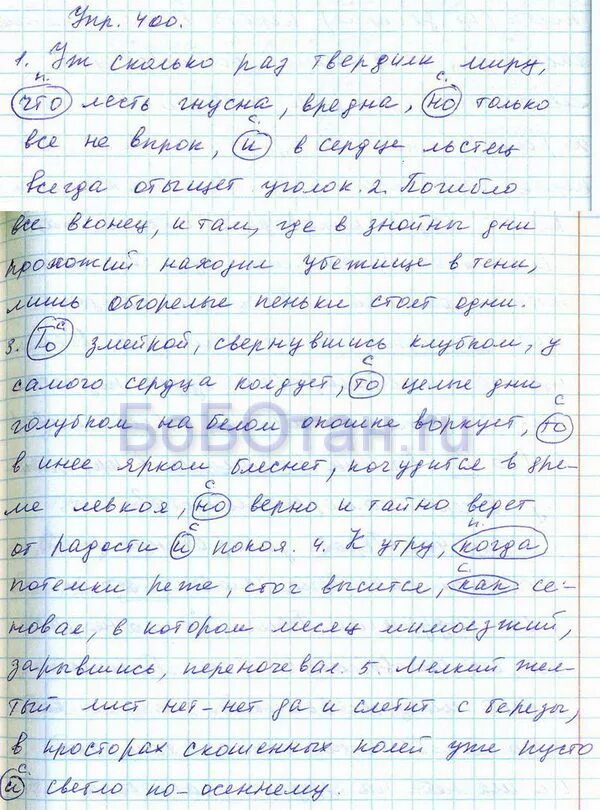 Упр. 400.
1. Уж сколько раз твердили миру,
п. с.
что лесть гнусна, вредна, но только
с.
все не впрок, и в сердце льстец
всегда отыщет уголок. 2. Погибло
все вконец, и там, где в знойны дни
прохожий находил убежище в тени,
лишь обгорелые пеньки стоят одни.
с
3. То змейкой, свернувшись клубком, у
с
самого сердца колдует, то целые дни
с
голубком на белом окошке воркует, то
в инее ярком блеснет, почудится в дре-
с
ме левкоя, но верно и тайно ведет
с п.
от радости и покоя. 4. К утру, когда
с
потемки реже, стог высится, как се-
новал, в котором месяц мимоезжий,
зарывшись, переночевал. 5. Мелкий жел-
тый лист нет-нет да и слетит с березы,
в просторах скошенных полей уже пусто
с.
и светло по-осеннему.
БоБОтан.ru